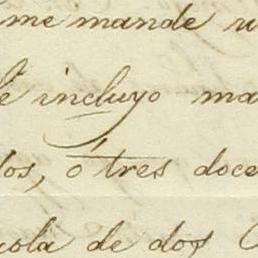 me mande u
é incluyo ma
dos, ó tres doce
cola de dos